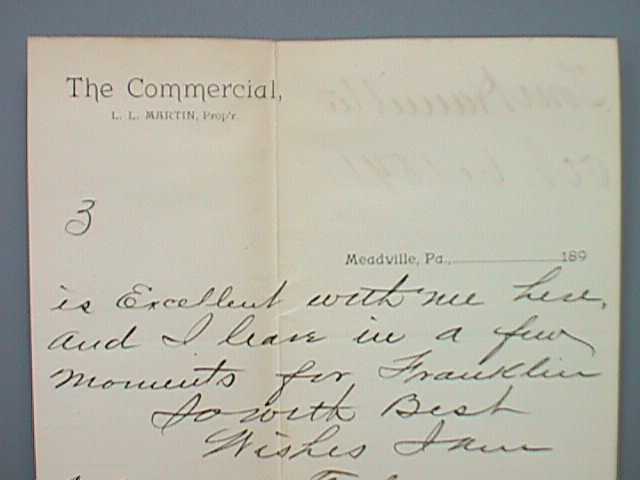 The Commercial,
L. L. MARTIN, Prop'r.
3
Meadville, Pa., 189
is Excellent with me here,
and I leave in a few
moments for Franklin
So with Best
Wishes I am